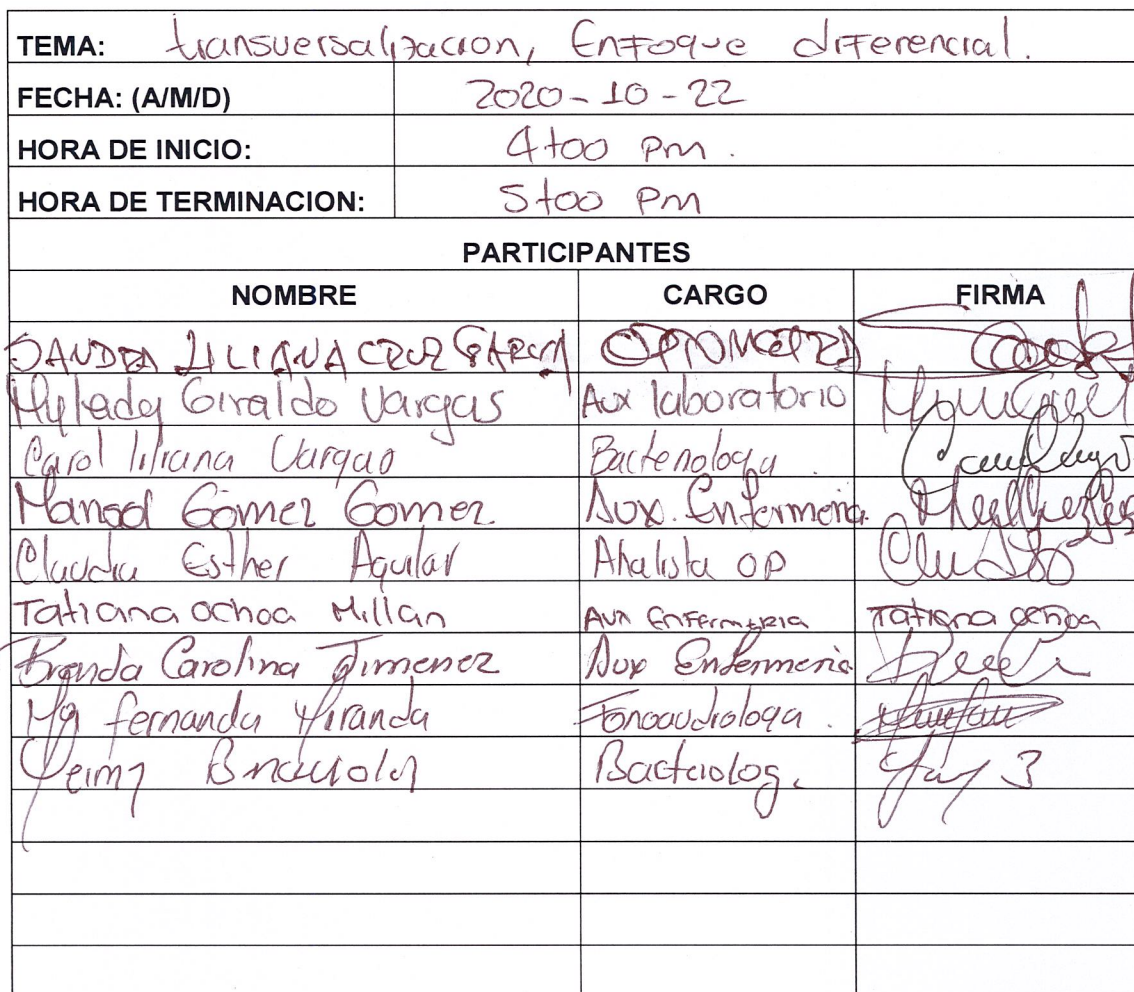 TEMA: transversalizacion, Enfoque diferencial.
FECHA: (A/M/D) 2020-10-22
HORA DE INICIO: 4+00 Pm.
HORA DE TERMINACION: 5+00 Pm
PARTICIPANTES
NOMBRE CARGO FIRMA
SANDRA LILIANA CRUZ GARCIA OPTOMETRA
Giraldo Vargas Aux laboratorio
Carol liliana Vargas Bacteriologa.
Marisol Gómez Gomez Aux. Enfermeria.
Claudia Esther Aguilar Analista OP
Tatiana ochoa Millan Aux Enfermeria Tatiana ochoa
Brenda Carolina Jimenez Aux Enfermeria
Ma fernanda Miranda Fonoaudiologa.
Yeimy Bacteriolog.